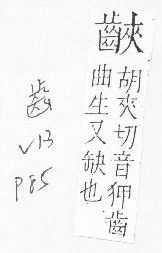 胡夾切音狎齒
曲生又缺也
齒
v13
p85